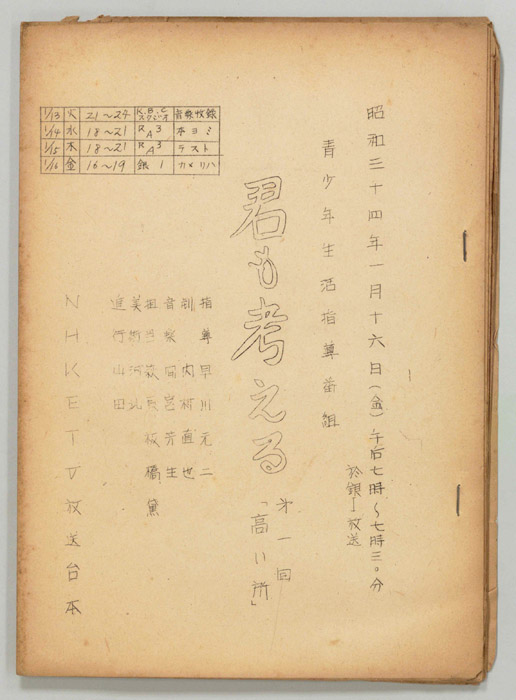 昭和三十四年一月十六日(金)午后七時〜七時三〇分
於銀I放送
青少年生活指導番組
君も考える
才一回
「高い所」
指導 早川元二
制 内村直也
音楽 間宮芳生
担当 萩原 板橋 篤
美術 河北
進行 山田
NHKETV放送台本
1/13 火 21〜24 K.B.C スタジオ 音楽收録
1/14 水 18〜21 RA3 本ヨミ
1/15 木 18〜21 RA3 テスト
1/16 金 16〜19 銀1 カメリハ